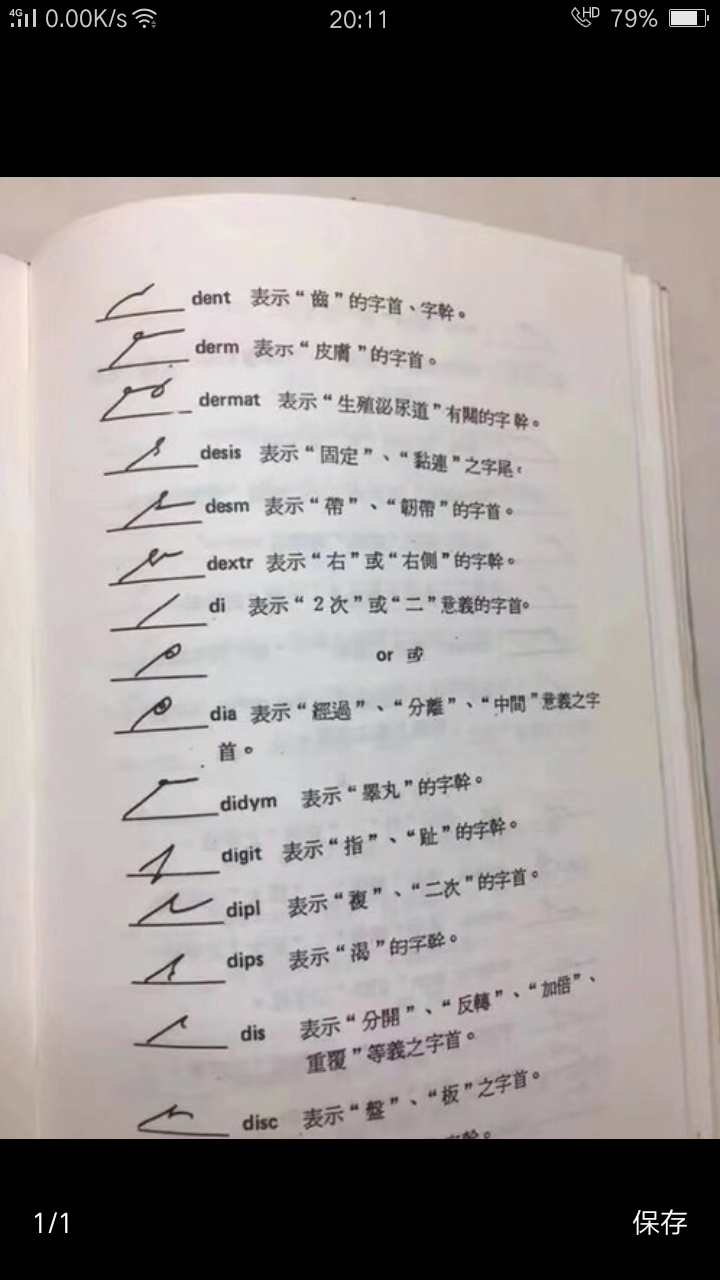 4G 0.00K/s 20:11 HD 79%
dent 表示“齒”的字首、字幹。
derm 表示“皮膚”的字首。
dermat 表示“生殖泌尿道”有關的字幹。
desis 表示“固定”、“黏連”之字尾。
desm 表示“帶”、“韌帶”的字首。
dextr 表示“右”或“右側”的字幹。
di 表示“2次”或“二”意義的字首。
or 或
dia 表示“經過”、“分離”、“中間”意義之字
首。
didym 表示“睪丸”的字幹。
digit 表示“指”、“趾”的字幹。
dipl 表示“複”、“二次”的字首。
dips 表示“渴”的字幹。
dis 表示“分開”、“反轉”、“加倍”、
重覆”等義之字首。
disc 表示“盤”、“板”之字首。
字幹。
1/1 保存